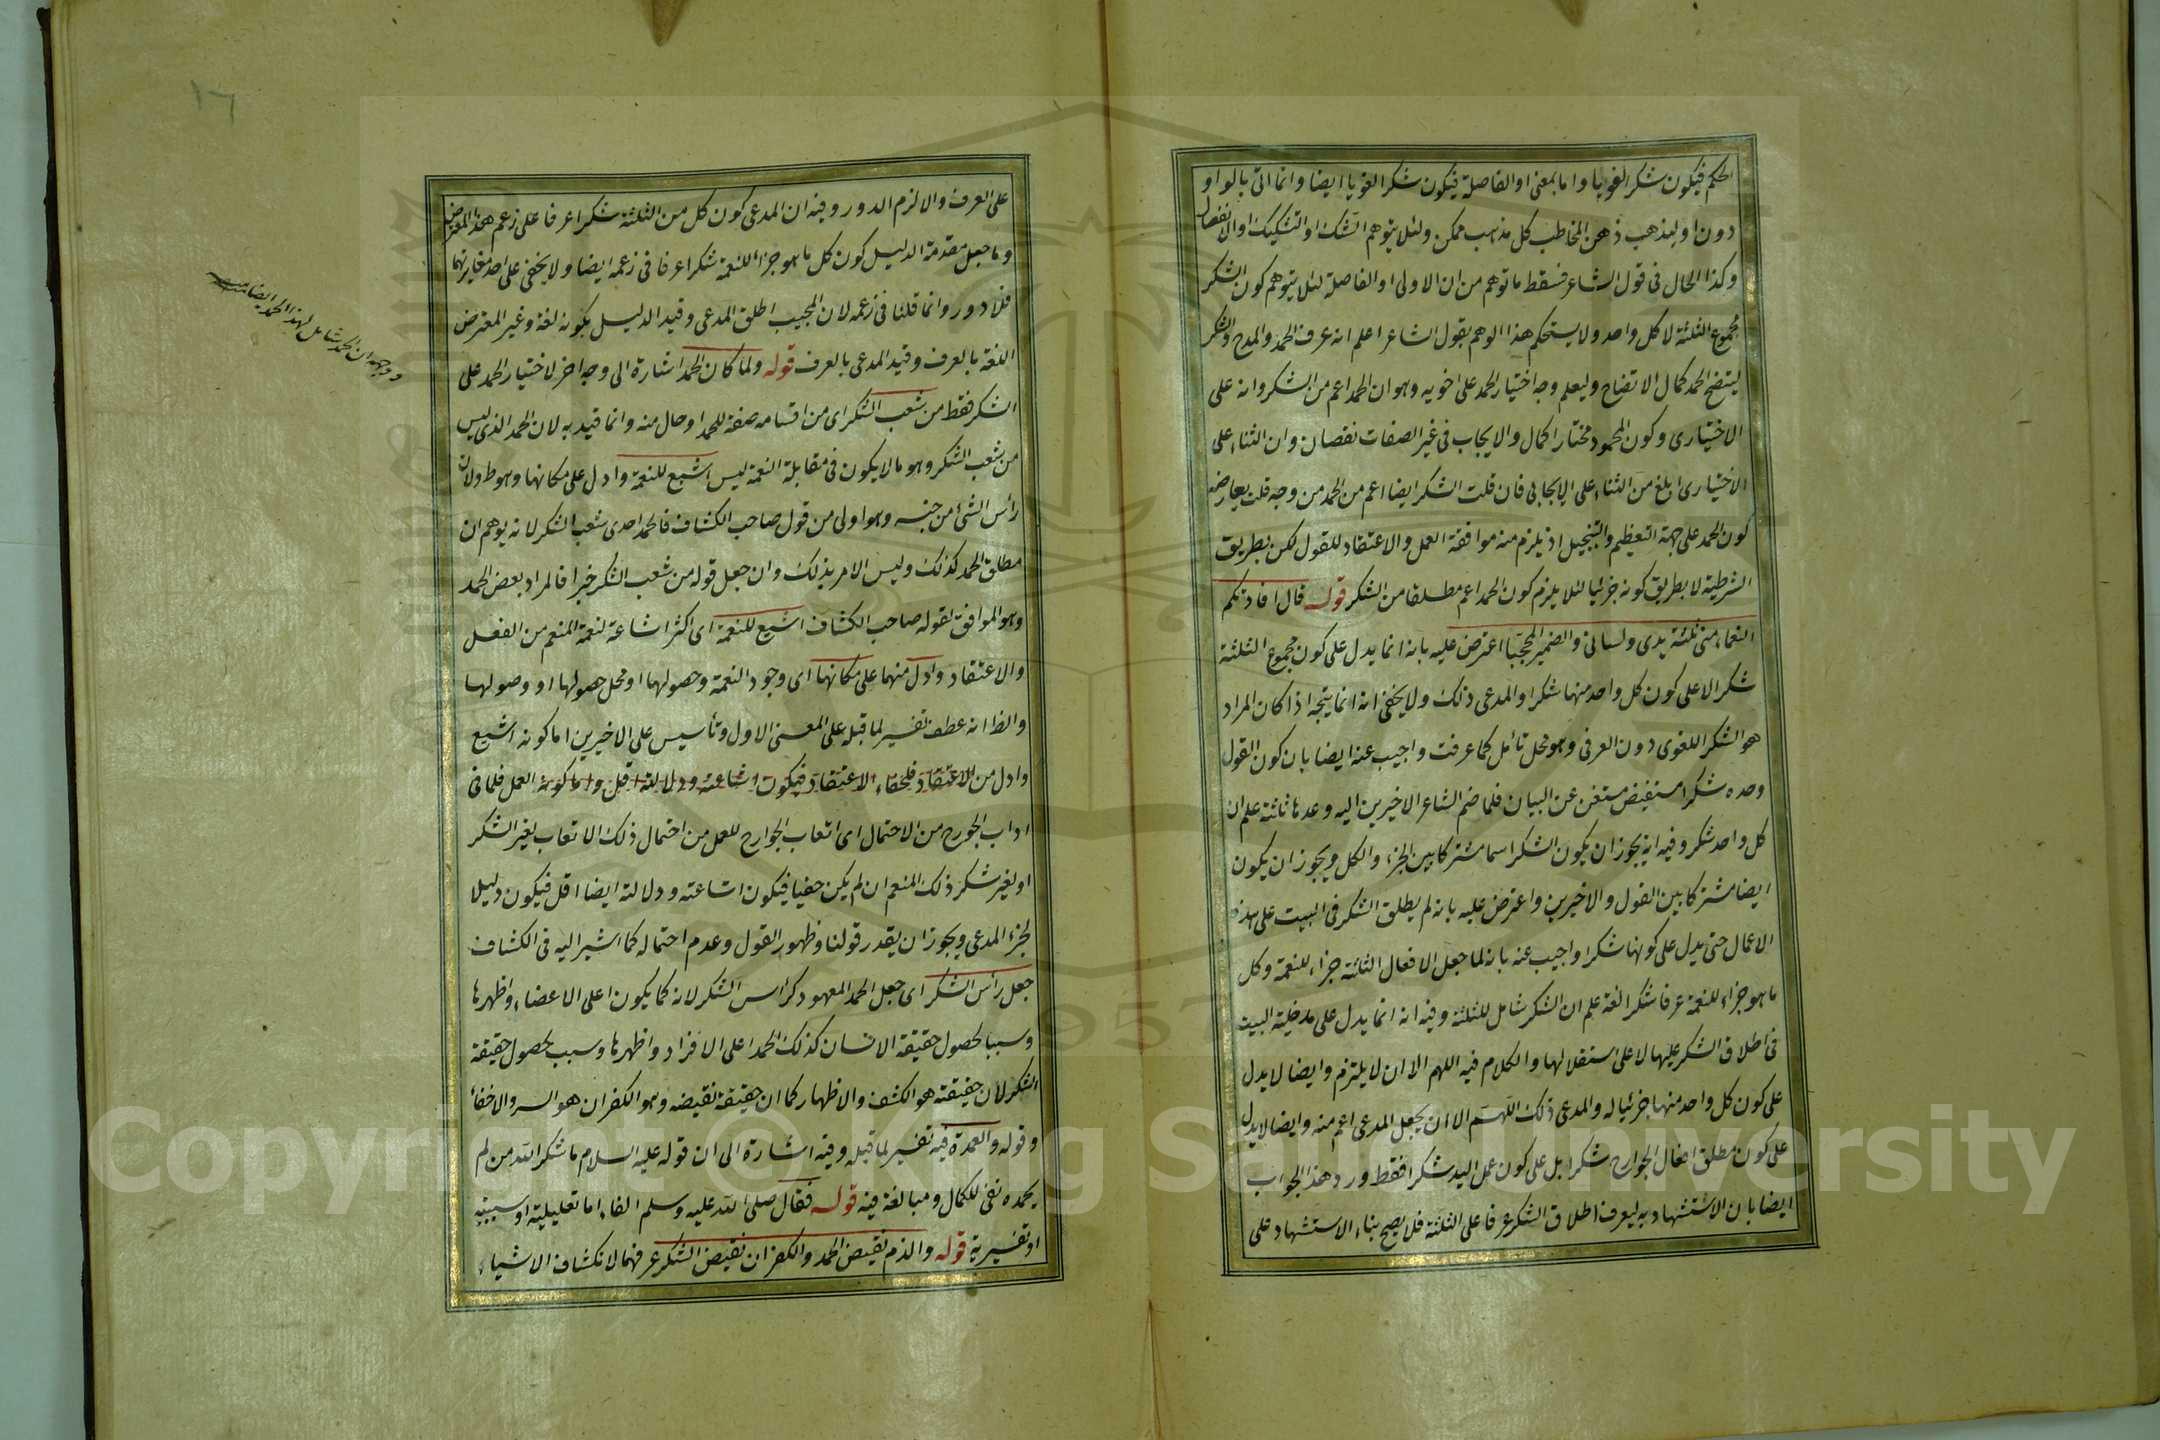 الحكم فيكون شكرا لغويا واما بمعنى او الفاصلة فيكون شكرا لغويا ايضا وانما اتى بالواو
دون او ليذهب ذهن المخاطب كل مذهب ممكن ولئلا يتوهم الشك او التشكيك والانفصال
وكذا الحال فى قول الشاعر فسقط ما توهم من ان الاولى او الفاصلة لئلا يتوهم كون الشكر
مجموع الثلثة لا كل واحد ولا يستحكم هذا الوهم بقول الشاعر اعلم انه عرف الحمد والمدح والشكر
ليتضح الحمد كمال الاتضاح وليعلم وجه اختيار الحمد على اخويه وهو ان الحمد اعم من الشكر وانه على
الاختيارى وكون المحمود مختارا كمال والايجاب فى غير الصفات نقصان وان الثناء على
الاختيارى ابلغ من الثناء على الايجابى فان قلت الشكر ايضا اعم من الحمد من وجه قلت يعارضه
كون الحمد على جهة التعظيم والتبجيل اذ يلزم منه موافقة العمل والاعتقاد للقول لكن بطريق
الشرطية لا بطريق كونه جزئيا لئلا يلزم كون الحمد اعم مطلقا من الشكر قوله قال افادتكم
النعماء منى ثلثة يدى ولسانى والضمير المحجبا اعترض عليه بانه انما يدل على كون مجموع الثلثة
شكرا لا على كون كل واحد منها شكرا والمدعى ذلك ولا يخفى انه انما يتجه اذا كان المراد
هو الشكر اللغوى دون العرفى وهو محل تأمل كما عرفت واجيب عنه ايضا بان كون القول
وحده شكرا مستفيض مستغن عن البيان فلما ضم الشاعر الاخيرين اليه وعدها ثلثة علم ان
كل واحد شكر وفيه انه يجوز ان يكون الشكر اسما مشتركا بين الجزء والكل ويجوز ان يكون
ايضا مشتركا بين القول والاخيرين واعترض عليه بانه لم يطلق الشكر فى البيت على هذه
الاعمال حتى يدل على كونها شكرا واجيب عنه بانه لما جعل الافعال الثلثة جزاء للنعمة وكل
ما هو جزاء للنعمة عرفا شكر لغة علم ان الشكر شامل للثلثة وفيه انه انما يدل على مدخلية البيت
فى اطلاق الشكر عليها لا على استقلالها والكلام فيه اللهم الا ان لا يلتزم وايضا لا يدل
على كون كل واحد منها جزئيا له والمدعى ذلك اللهم الا ان يجعل المدعى اعم منه وايضا لا يدل
على كون مطلق افعال الجوارح شكرا بل على كون عمل اليد شكرا فقط ورد هذا الجواب
ايضا بان الاستشهاد به ليعرف اطلاق الشكر عرفا على الثلثة فلا يصح بناء الاستشهاد على
على العرف والا لزم الدور وفيه ان المدعى كون كل من الثلثة شكرا عرفا على زعم هذا المعترض
وما جعل مقدمة الدليل كون كل ما هو جزاء للنعمة شكرا عرفا فى زعمه ايضا ولا يخفى على احد مغايرتهما
فلا دور وانما قلنا فى زعمه لان المجيب اطلق المدعى وقيد الدليل بكونه لغة وغير المعترض
اللغة بالعرف وقيد المدعى بالعرف قوله ولما كان الحمد اشارة الى وجه اخر لاختيار الحمد على
الشكر فقط من شعب الشكر اى من اقسامه صفة للحمد او حال منه وانما قيد به لان الحمد الذى ليس
من شعب الشكر وهو ما لا يكون فى مقابلة النعمة ليس اشيع للنعمة وادل على مكانها وهو ط ولان
رأس الشئ من جنسه وهو اولى من قول صاحب الكشاف فالحمد احدى شعب الشكر لانه يوهم ان
مطلق الحمد كذلك وليس الامر بذلك وان جعل قوله من شعب الشكر خبرا فالمراد بعض الحمد
وهو الموافق لقوله صاحب الكشاف اشيع للنعمة اى اكثر اشاعة لنعمة المنعم من الفعل
والاعتقاد وادل منهما على مكانها اى وجود النعمة وحصولها او محل حصولها او وصولها
والظ انه عطف تفسير لما قبله على المعنى الاول وتأسيس على الاخيرين اما كونه اشيع
وادل من الاعتقاد فلخفاء الاعتقاد فيكون اشاعته ودلالته اقل واما كونه العمل فلما فى
اداب الجورح من الاحتمال اى اتعاب الجوارح للعمل من احتمال ذلك الاتعاب لغير الشكر
او لغير شكر ذلك المنعم ان لم يكن خفيا فيكون اشاعته ودلالته ايضا اقل فيكون دليلا
لجزء المدعى ويجوز ان يقدر قولنا وظهور القول وعدم احتماله كما اشير اليه فى الكشاف
جعل رأس الشكر اى جعل الحمد المعهود كرأس الشكر لانه كما يكون اعلى الاعضاء واظهرها
وسببا لحصول حقيقة الانسان كذلك الحمد اعلى الافراد واظهرها وسبب لحصول حقيقة
الشكر لان حقيقته هو الكشف والاظهار كما ان حقيقة نقيضه وهو الكفران هو الستر والاخفاء
وقوله والعمدة فيه تفسير لما قبله وفيه اشارة الى ان قوله عليه السلام ما شكر الله من لم
يحمده نفى للكمال ومبالغة فيه قوله فقال صلى الله عليه وسلم الفاء اما تعليلية او سببية
او تفسيرية قوله والذم نقيض الحمد والكفران نقيض الشكر عرفهما لانكشاف الاشياء
١٦
ووجهه ان الحمد شامل لهذا الحمد ايضا
Copyright © King Saud University
1957